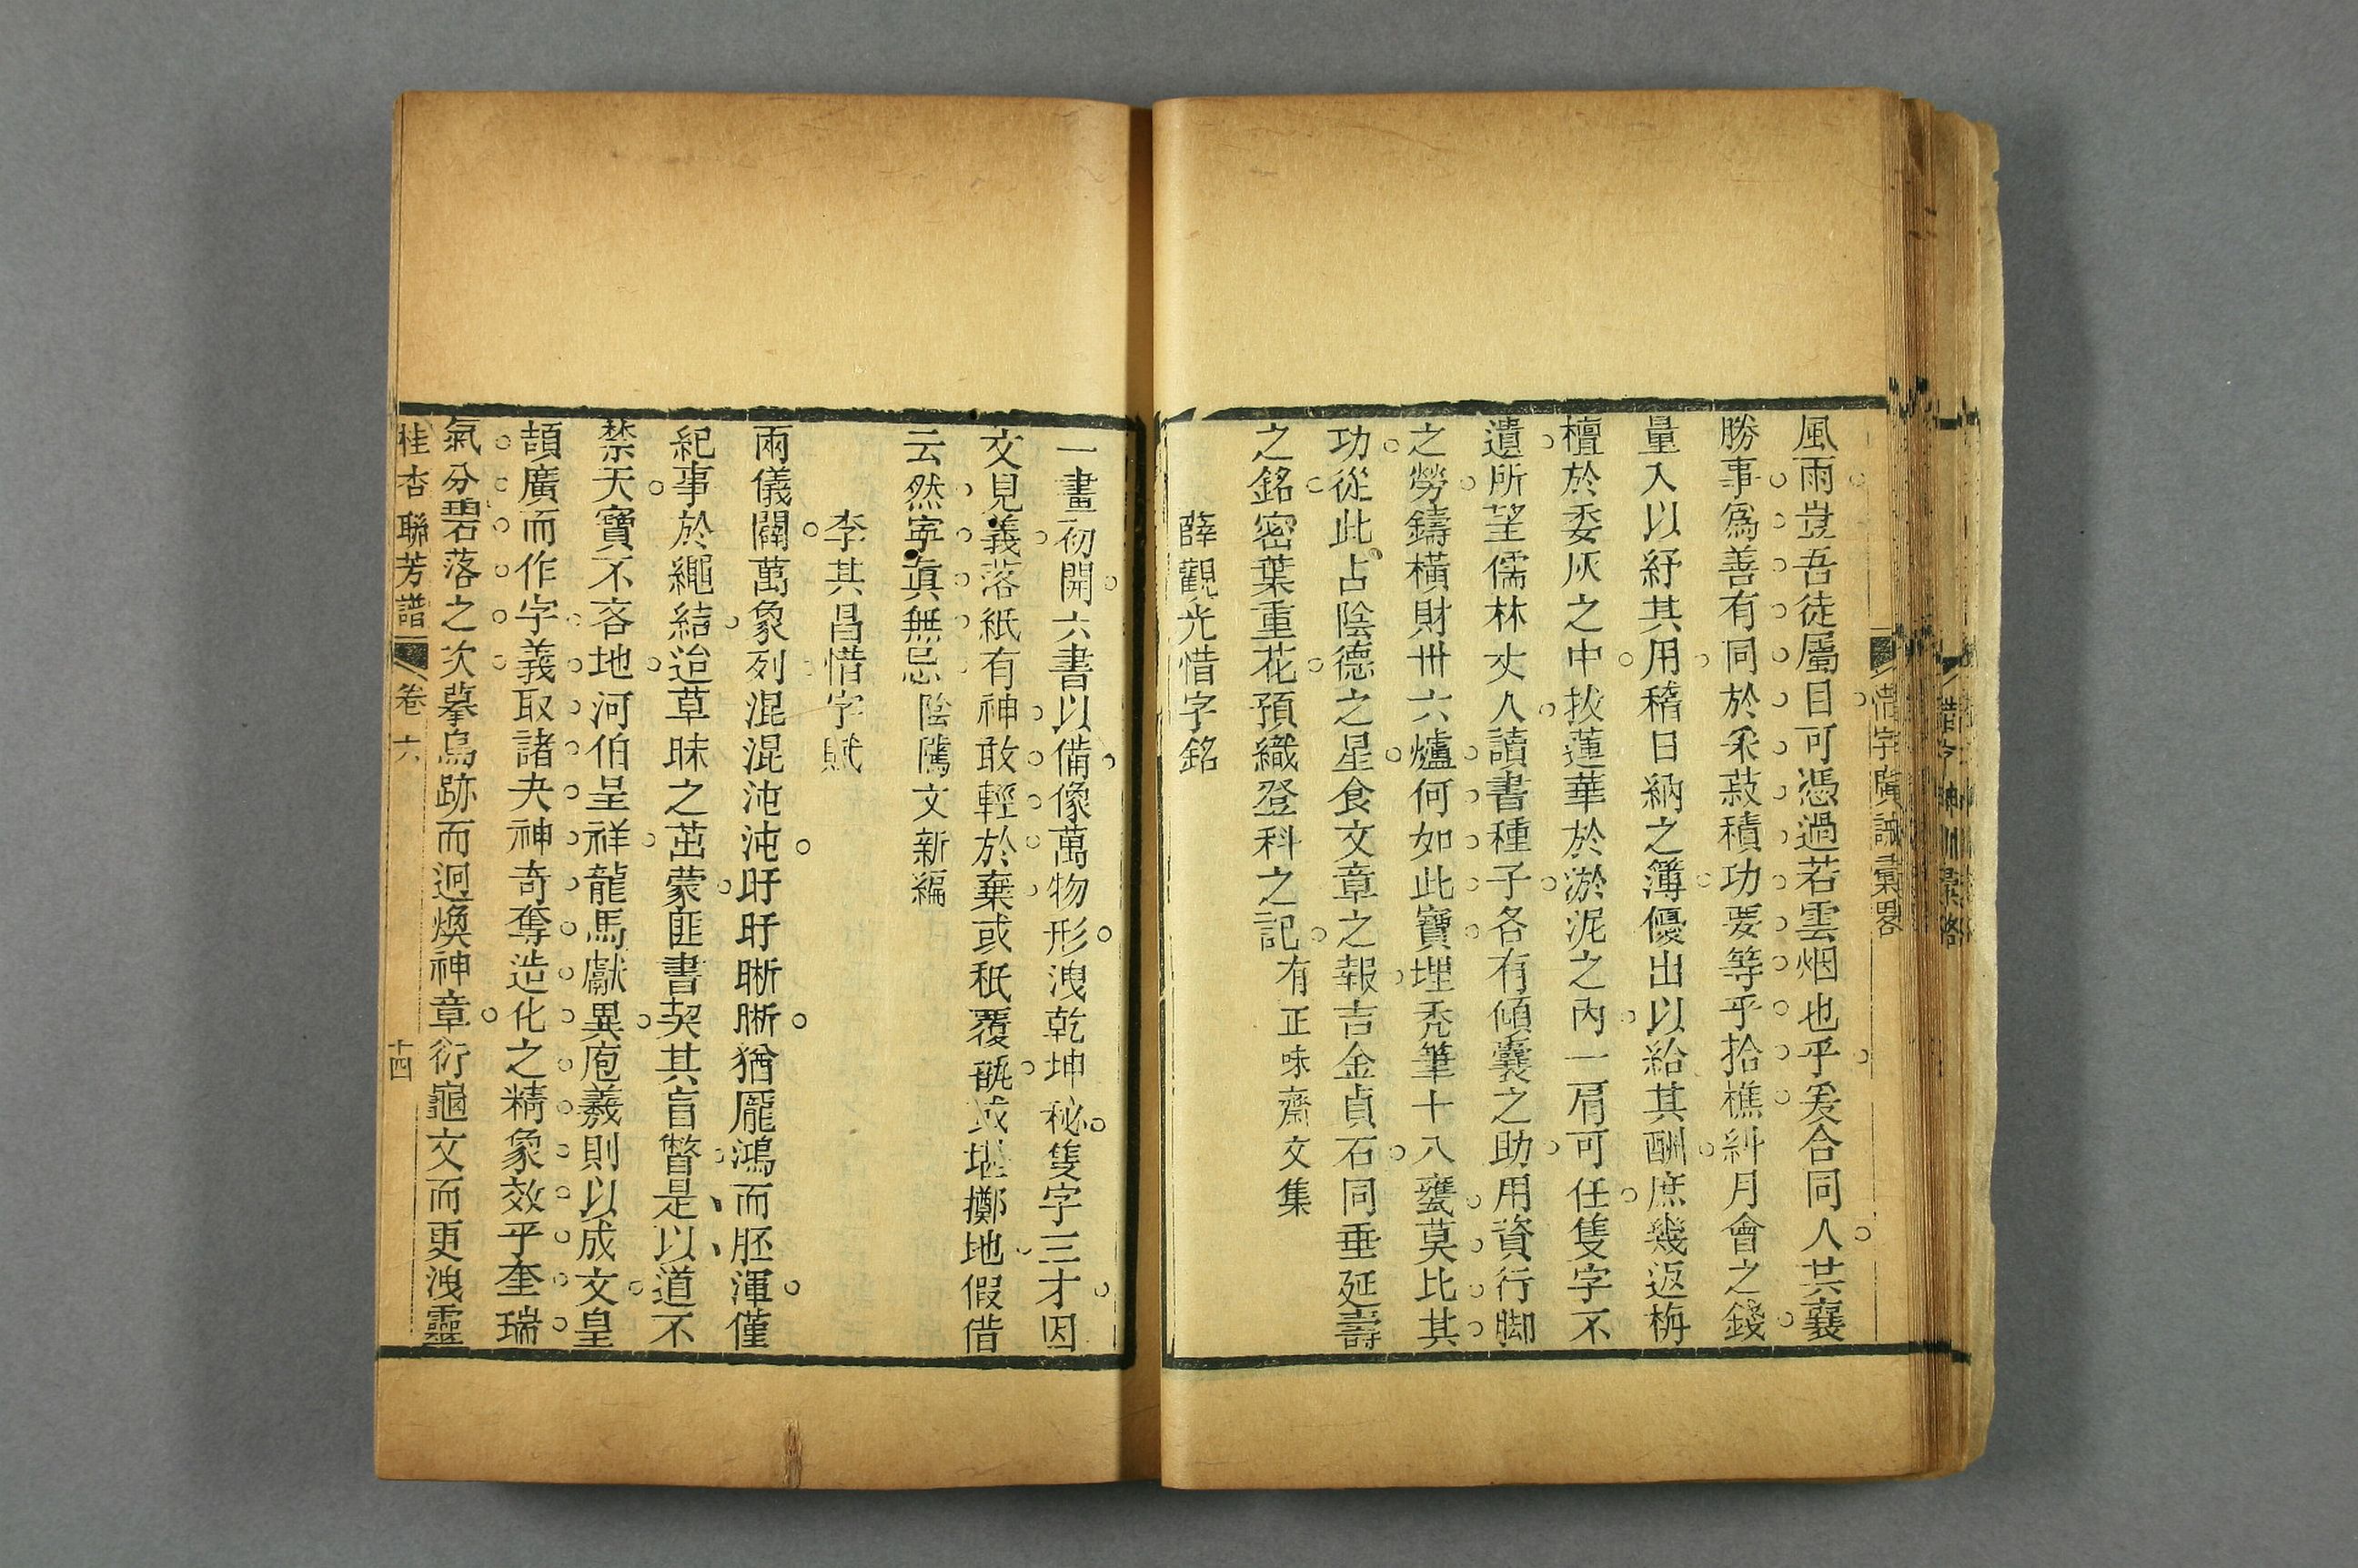 惜字廣誡彙畧
風雨豈吾徒屬目可憑過若雲烟也乎爰合同人共襄
勝事爲善有同於采菽積功要等乎拾樵糾月會之錢
量入以紓其用稽日納之簿優出以給其酬庶幾返栴
檀於委灰之中拔蓮華於淤泥之內一肩可任隻字不
遺所望儒林丈人讀書種子各有傾囊之助用資行脚
之勞鑄橫財卅六爐何如此寶埋禿筆十八甕莫比其
功從此占陰德之星食文章之報吉金貞石同垂延壽
之銘密葉重花預織登科之記有正味齋文集
薛觀光惜字銘
一畫初開六書以備像萬物形洩乾坤秘隻字三才因
文見義落紙有神敢輕於棄或秖覆瓿或堪擲地假借
云然寜眞無忌陰隲文新編
李其昌惜字賦
兩儀闢萬象列混混沌沌盱盱晣晣猶厖鴻而胚渾僅
紀事於繩結迨草昧之茁蒙匪書契其盲瞽是以道不
禁天寶不吝地河伯呈祥龍馬獻異庖羲則以成文皇
頡廣而作字義取諸夬神奇奪造化之精象效乎奎瑞
氣分碧落之次摹鳥跡而迥煥神章衍龜文而更洩靈
桂杏聯芳譜 卷六 十四